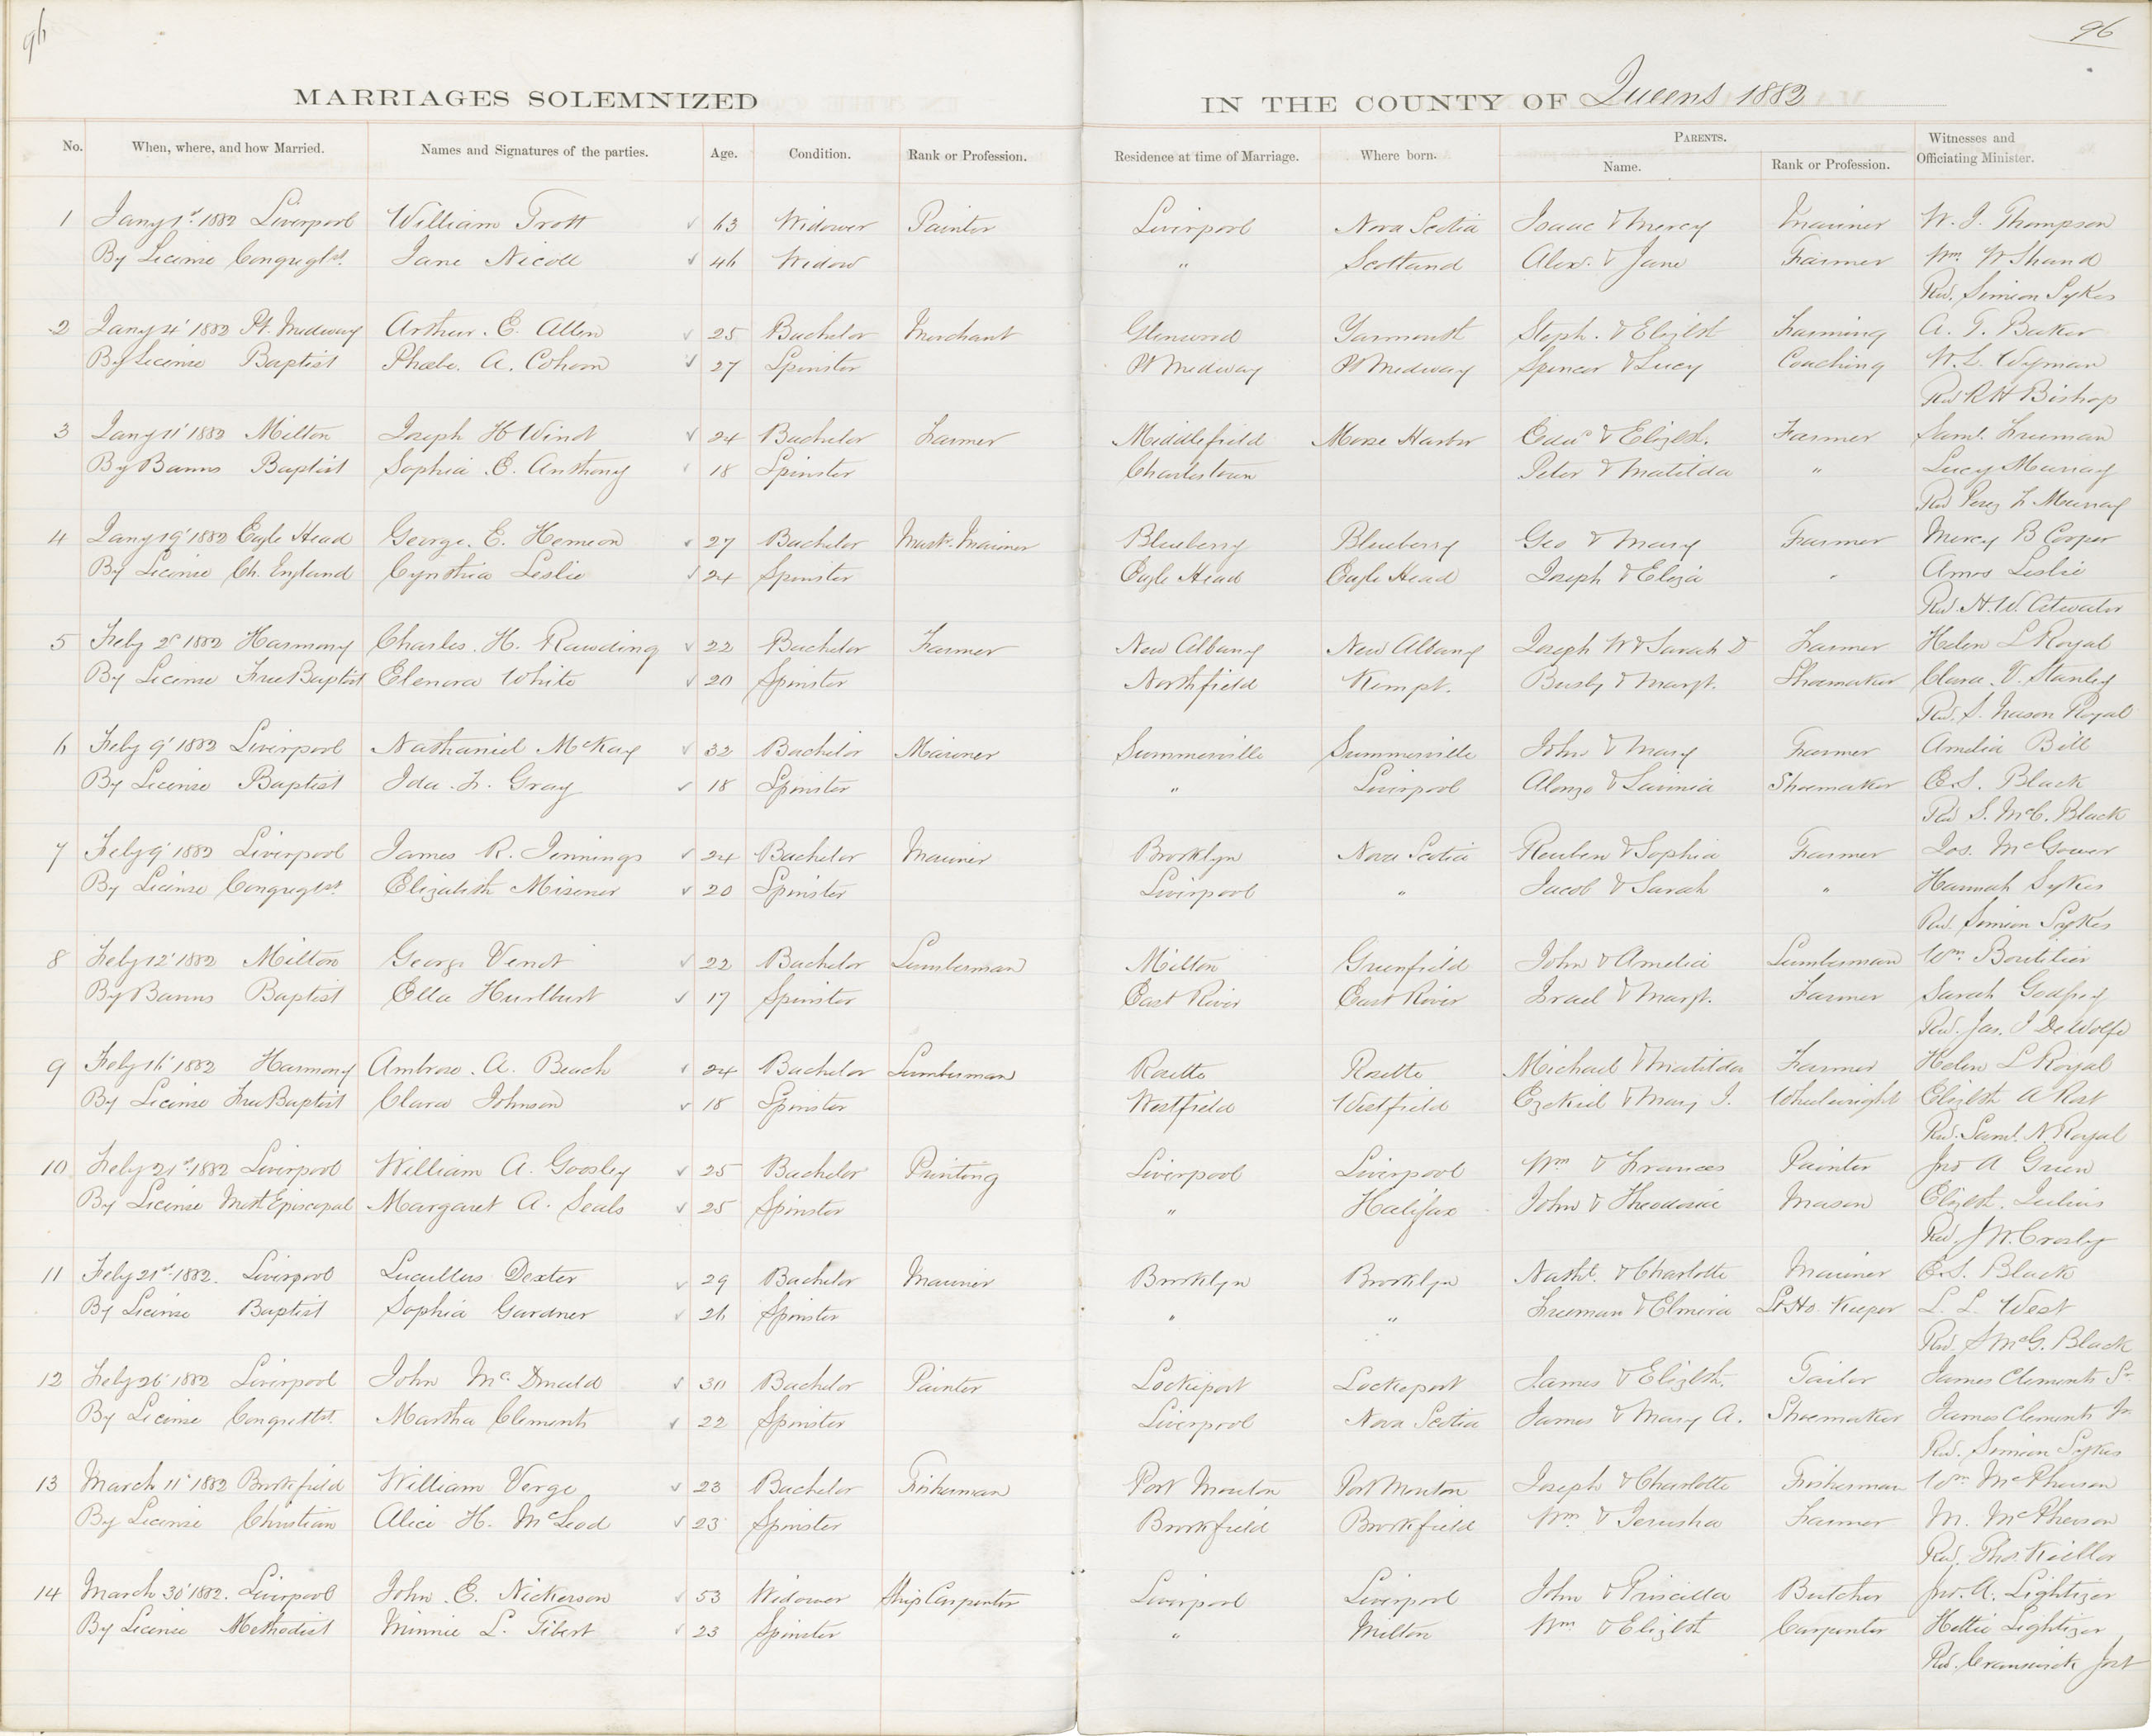 96
96
MARRIAGES SOLEMNIZED IN THE COUNTY OF Queens 1882
No. When, where, and how Married. Names and Signatures of the parties. Age. Condition. Rank or Profession. Residence at time of Marriage. Where born. PARENTS. Name. Rank or Profession. Witnesses and Officiating Minister.
1 Jany 1st 1882 Liverpool William Trott 63 Widower Painter Liverpool Nova Scotia Isaac & Mercy Mariner W. J. Thompson
By License Congreglst. Jane Nicoll 46 Widow " Scotland Alex. & Jane Farmer Wm. W Shand
Rev. Simeon Sykes
2 Jany 4' 1882 Pt. Medway Arthur. E. Allen 25 Bachelor Merchant Glenwood Yarmouth Steph. & Elizbth Farming A. T. Baker
By License Baptist Phœbe. A. Cohoon 27 Spinster Pt Medway Pt Medway Spencer & Lucy Coaching W. L. Wyman
Rev R H Bishop
3 Jany 11' 1882 Milton Joseph H Winot 24 Bachelor Farmer Middlefield Moose Harbor Edwd & Elizbth. Farmer Saml. Freeman
By Banns Baptist Sophia. E. Anthony 18 Spinster Charlestown Peter & Matilda " Lucy Murray
Rev Perez F Murray
4 Jany 19' 1882 Eagle Head George. E. Hemeon 27 Bachelor Mast. Mariner Blueberry Blueberry Geo & Mary Farmer Mercy B Cooper
By License Ch. England Cynthia Leslie 24 Spinster Eagle Head Eagle Head Joseph & Eliza " Amos Leslie
Rev. H. W. Atwater
5 Feby 2d 1882 Harmony Charles. H. Rawding 22 Bachelor Farmer New Albany New Albany Joseph W & Sarah D Farmer Helen L Royal
By License Free Baptist Elenora White 20 Spinster Northfield Kempt. Busby & Margt. Shoemaker Clara. V. Stanley
Rev. S. Nason Royal
6 Feby 9' 1882 Liverpool Nathaniel McKay 32 Bachelor Mariner Summerville Summerville John & Mary Farmer Amelia Bill
By License Baptist Ida. F. Gray 18 Spinster " Liverpool Alonzo & Lavinia Shoemaker E. S. Black
Rev S. McC. Black
7 Feby 9' 1882 Liverpool James R. Jennings 24 Bachelor Mariner Brooklyn Nova Scotia Reuben & Sophia Farmer Jos. McGower
By License Congreglst. Elizabeth Misener 20 Spinster Liverpool " Jacob & Sarah " Hannah Sykes
Rev. Simeon Sykes
8 Feby 12' 1882 Milton George Venot 22 Bachelor Lumberman Milton Greenfield John & Amelia Lumberman Wm. Boutilier
By Banns Baptist Ella Hurlburt 17 Spinster East River East River Israel & Margt. Farmer Sarah Godfrey
Rev. Jas. J DeWolfe
9 Feby 16' 1882 Harmony Ambrose. A. Beach 24 Bachelor Lumberman Rosette Rosette Michael & Matilda Farmer Helen L Royal
By License Free Baptist Clara Johnson 18 Spinster Westfield Westfield Ezekiel & Mary J. Wheelwright Elizbth A Rost
Rev. Saml. N. Royal
10 Feby 21st 1882 Liverpool William A. Goosley 25 Bachelor Painting Liverpool Liverpool Wm & Frances Painter Jno A Green
By License Meth Episcopal Margaret A. Seals 25 Spinster " Halifax John & Theodosia Mason Elizbth. Julius
Rev. J W. Crosby
11 Feby 21st 1882. Liverpool Lucullus Dexter 29 Bachelor Mariner Brooklyn Brooklyn Nathl. & Charlotte Mariner E. S. Black
By License Baptist Sophia Gardner 26 Spinster " " Freeman & Elmira Lt Ho. Keeper L. L. West
Rev. S McG. Black
12 Feby 26' 1882 Liverpool John Mc. Donald 30 Bachelor Painter Lockeport Lockeport James & Elizbth. Tailor James Clements Sr.
By License Congretlst. Martha Clements 22 Spinster Liverpool Nova Scotia James & Mary A. Shoemaker James Clements Jr.
Rev. Simeon Sykes
13 March 11' 1882 Brookfield William Verge 23 Bachelor Fisherman Port Mouton Port Mouton Joseph & Charlotte Fisherman Wm McPherson
By License Christian Alice H. McLeod 23 Spinster Brookfield Brookfield Wm. & Jerusha Farmer M. McPherson
Rev. Thos. Keillor
14 March 30' 1882. Liverpool John. E. Nickerson 53 Widower Ship Carpenter Liverpool Liverpool John & Priscilla Butcher Jno. A. Lightizer
By License Methodist Minnie L. Tibert 23 Spinster " Milton Wm & Elizbth Carpenter Hettie Lightizer
Rev. Cranswick Jost